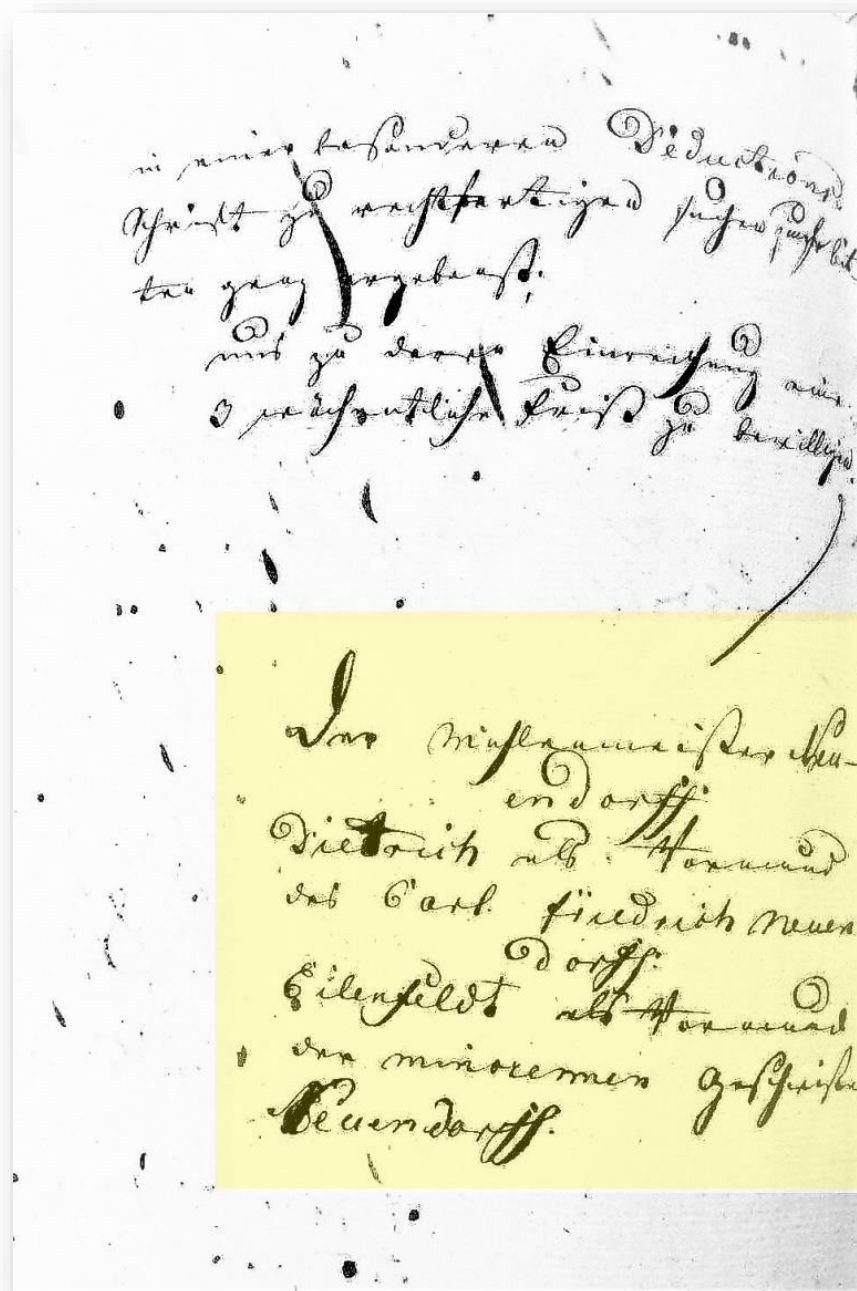 in einer besonderen Deductions
Schrift zu rechtfertigen suchen bit
ten ganz ergebenst:
uns zu deren Einreichung eine
3 wöchentliche Frist zu bewilligen.
Der Mühlenmeister Neu-
endorff.
Dietrich als Vormund
des Carl friedrich Neuen
dorff.
Eilenfeldt als Vormund
der minorennen Geschwister
Neuendorff.